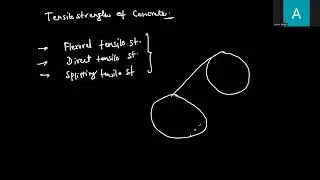 Tensile strengths of Concrete.
→ Flexural tensile st.
→ Direct tensile st.
→ Splitting tensile st
A